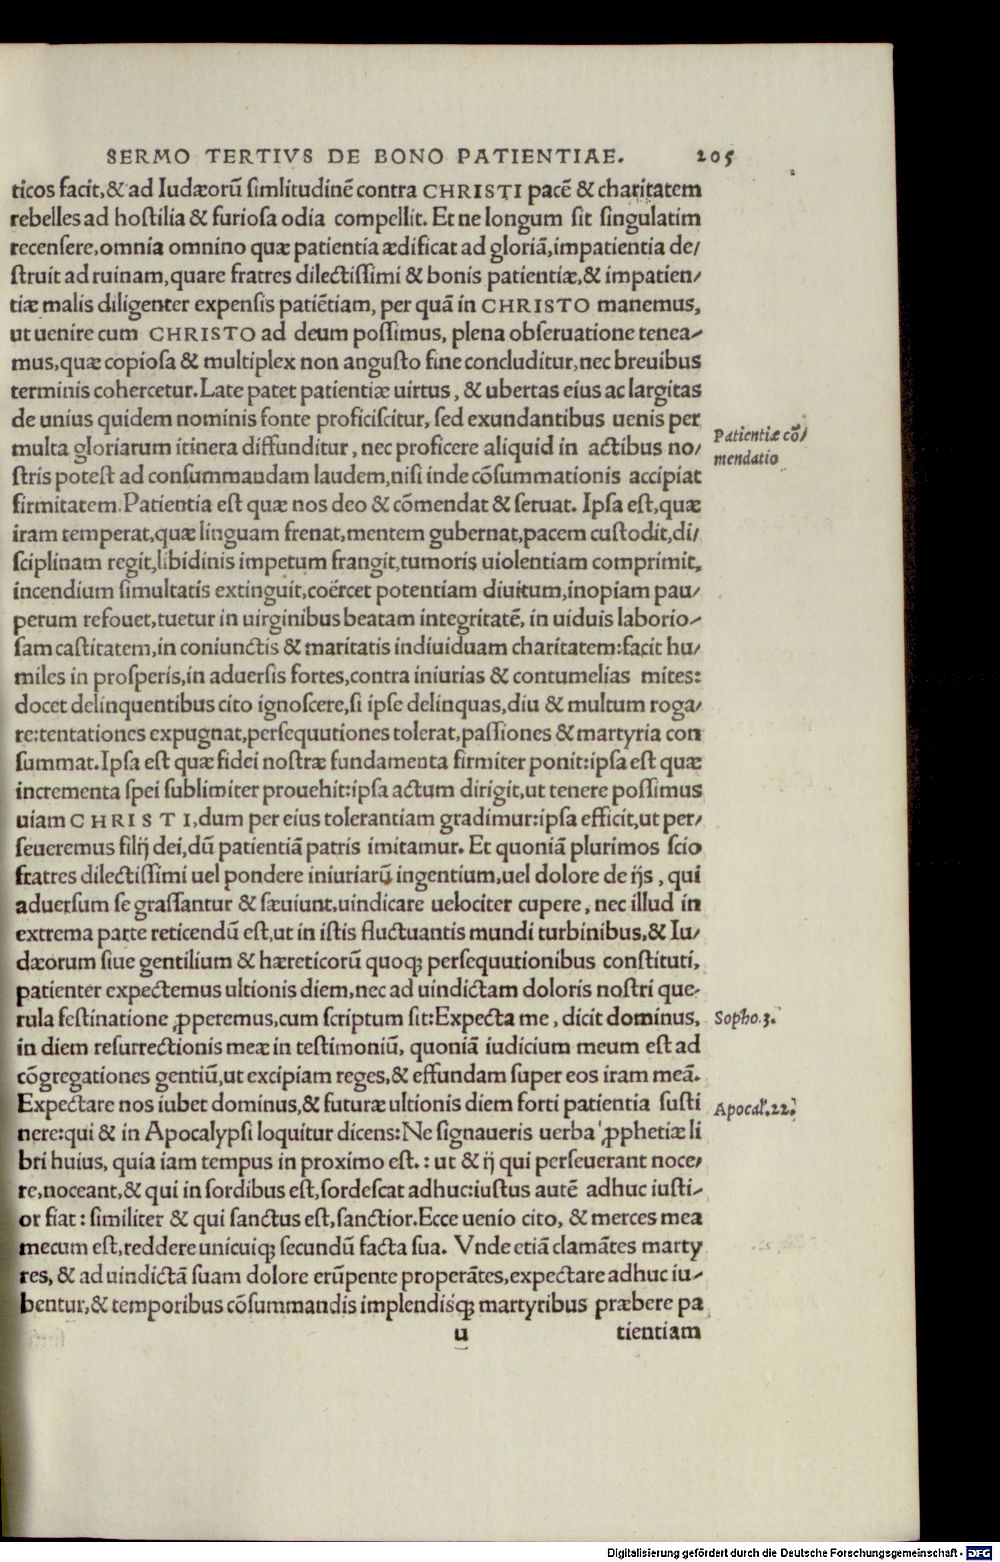 SERMO TERTIVS DE BONO PATIENTIAE. 205
ticos facit,& ad Iudæorũ simlitudinẽ contra CHRISTI pacẽ & charitatem
rebelles ad hostilia & furiosa odia compellit. Et ne longum sit singulatim
recensere,omnia omnino quæ patientia ædificat ad gloriã,impatientia de/
struit ad ruinam,quare fratres dilectissimi & bonis patientiæ,& impatien/
tiæ malis diligenter expensis patiẽtiam, per quã in CHRISTO manemus,
ut uenire cum CHRISTO ad deum possimus, plena obseruatione tenea/
mus,quæ copiosa & multiplex non angusto fine concluditur,nec breuibus
terminis cohercetur.Late patet patientiæ uirtus, & ubertas eius ac largitas
de unius quidem nominis fonte proficiscitur, sed exundantibus uenis per
multa gloriarum itinera diffunditur, nec proficere aliquid in actibus no/
Patientiæ cõ/
mendatio
stris potest ad consummandam laudem,nisi inde cõsummationis accipiat
firmitatem.Patientia est quæ nos deo & cõmendat & seruat. Ipsa est,quæ
iram temperat,quæ linguam frenat,mentem gubernat,pacem custodit,di/
sciplinam regit,libidinis impetum frangit,tumoris uiolentiam comprimit,
incendium simultatis extinguit,coërcet potentiam diuitum,inopiam pau/
perum refouet,tuetur in uirginibus beatam integritatẽ, in uiduis laborio/
sam castitatem,in coniunctis & maritatis indiuiduam charitatem:facit hu/
miles in prosperis,in aduersis fortes,contra iniurias & contumelias mites:
docet delinquentibus cito ignoscere,si ipse delinquas,diu & multum roga/
re:tentationes expugnat,persequutiones tolerat,passiones & martyria con
summat.Ipsa est quæ fidei nostræ fundamenta firmiter ponit:ipsa est quæ
incrementa spei sublimiter prouehit:ipsa actum dirigit,ut tenere possimus
uiam CHRISTI,dum per eius tolerantiam gradimur:ipsa efficit,ut per/
seueremus filij dei,dũ patientiã patris imitamur. Et quoniã plurimos scio
fratres dilectissimi uel pondere iniuriarũ ingentium,uel dolore de ijs, qui
aduersum se grassantur & sæuiunt,uindicare uelociter cupere, nec illud in
extrema parte reticendũ est,ut in istis fluctuantis mundi turbinibus,& Iu/
dæorum siue gentilium & hæreticorũ quoq; persequutionibus constituti,
patienter expectemus ultionis diem,nec ad uindictam doloris nostri que/
rula festinatione ꝓperemus,cum scriptum sit:Expecta me, dicit dominus,
Sopho.3.
in diem resurrectionis meæ in testimoniũ, quoniã iudicium meum est ad
cõgregationes gentiũ,ut excipiam reges,& effundam super eos iram meã.
Expectare nos iubet dominus,& futuræ ultionis diem forti patientia susti
Apocal.22.
nere:qui & in Apocalypsi loquitur dicens:Ne signaueris uerba ꝓphetiæ li
bri huius, quia iam tempus in proximo est.: ut & ij qui perseuerant noce/
re,noceant,& qui in sordibus est,sordescat adhuc:iustus autẽ adhuc iusti/
or fiat: similiter & qui sanctus est,sanctior.Ecce uenio cito, & merces mea
mecum est,reddere unicuiq; secundũ facta sua. Vnde etiã clamãtes marty
res, & ad uindictã suam dolore erũpente properãtes,expectare adhuc iu/
bentur,& temporibus cõsummandis implendisq; martyribus præbere pa
u tientiam
Digitalisierung gefördert durch die Deutsche Forschungsgemeinschaft - DFG